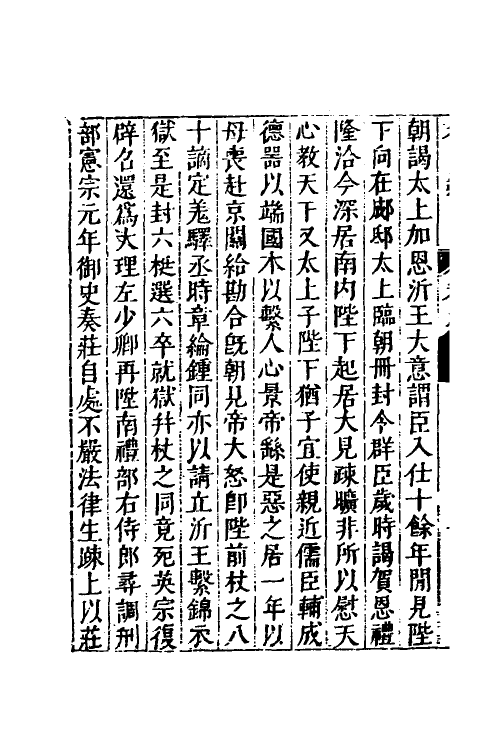 朝謁太上加恩沂王大意謂臣入仕十餘年聞見陛
下向在郕邸太上臨朝冊封令群臣歲時謁賀恩禮
隆洽今深居南內陛下起居大見疎曠非所以慰天
心教天下又太上子陛下猶子宜使親近儒臣輔成
德器以端國木以繫人心景帝繇是惡之居一年以
母喪赴京關給勘合旣朝見帝大怒卽陛前杖之八
十謫定羌驛丞時章綸鍾同亦以請立沂王繫錦衣
獄至是封六梃選六卒就獄幷杖之同竟死英宗復
辟名還爲大理左少卿再陞南禮部右侍郎尋調刑
部憲宗元年御史奏莊自處不嚴法律生疎上以莊